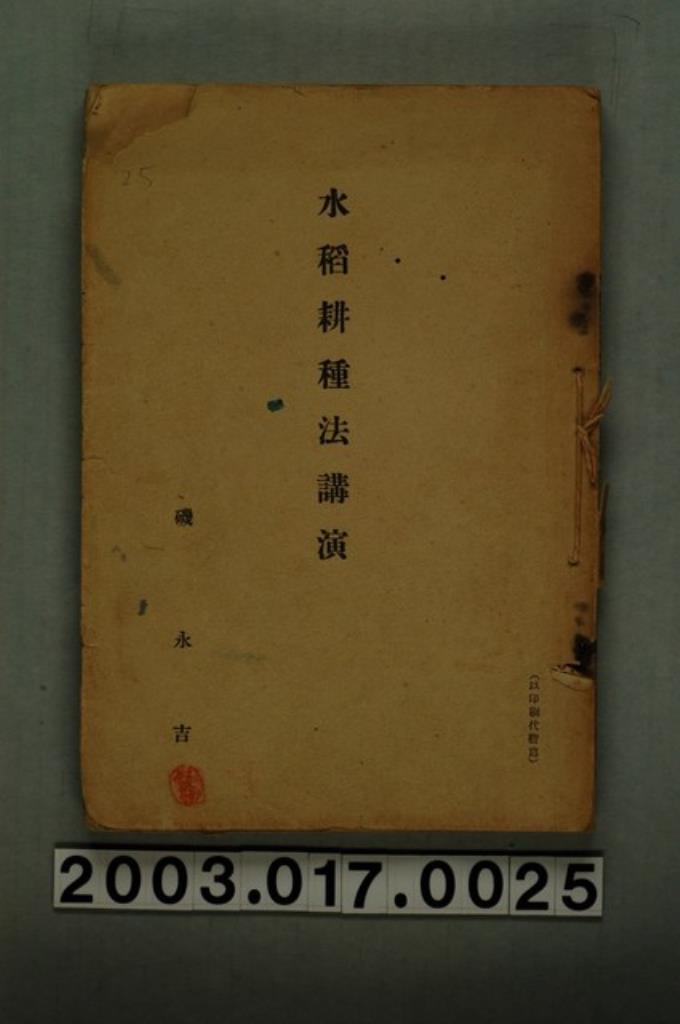 (以印刷代謄寫)
水稻耕種法講演
磯永吉
25
2003.017.0025